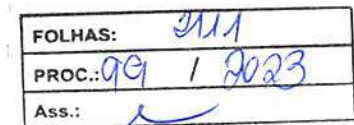 FOLHAS: 2111
PROC.: 99 / 2023
Ass.: